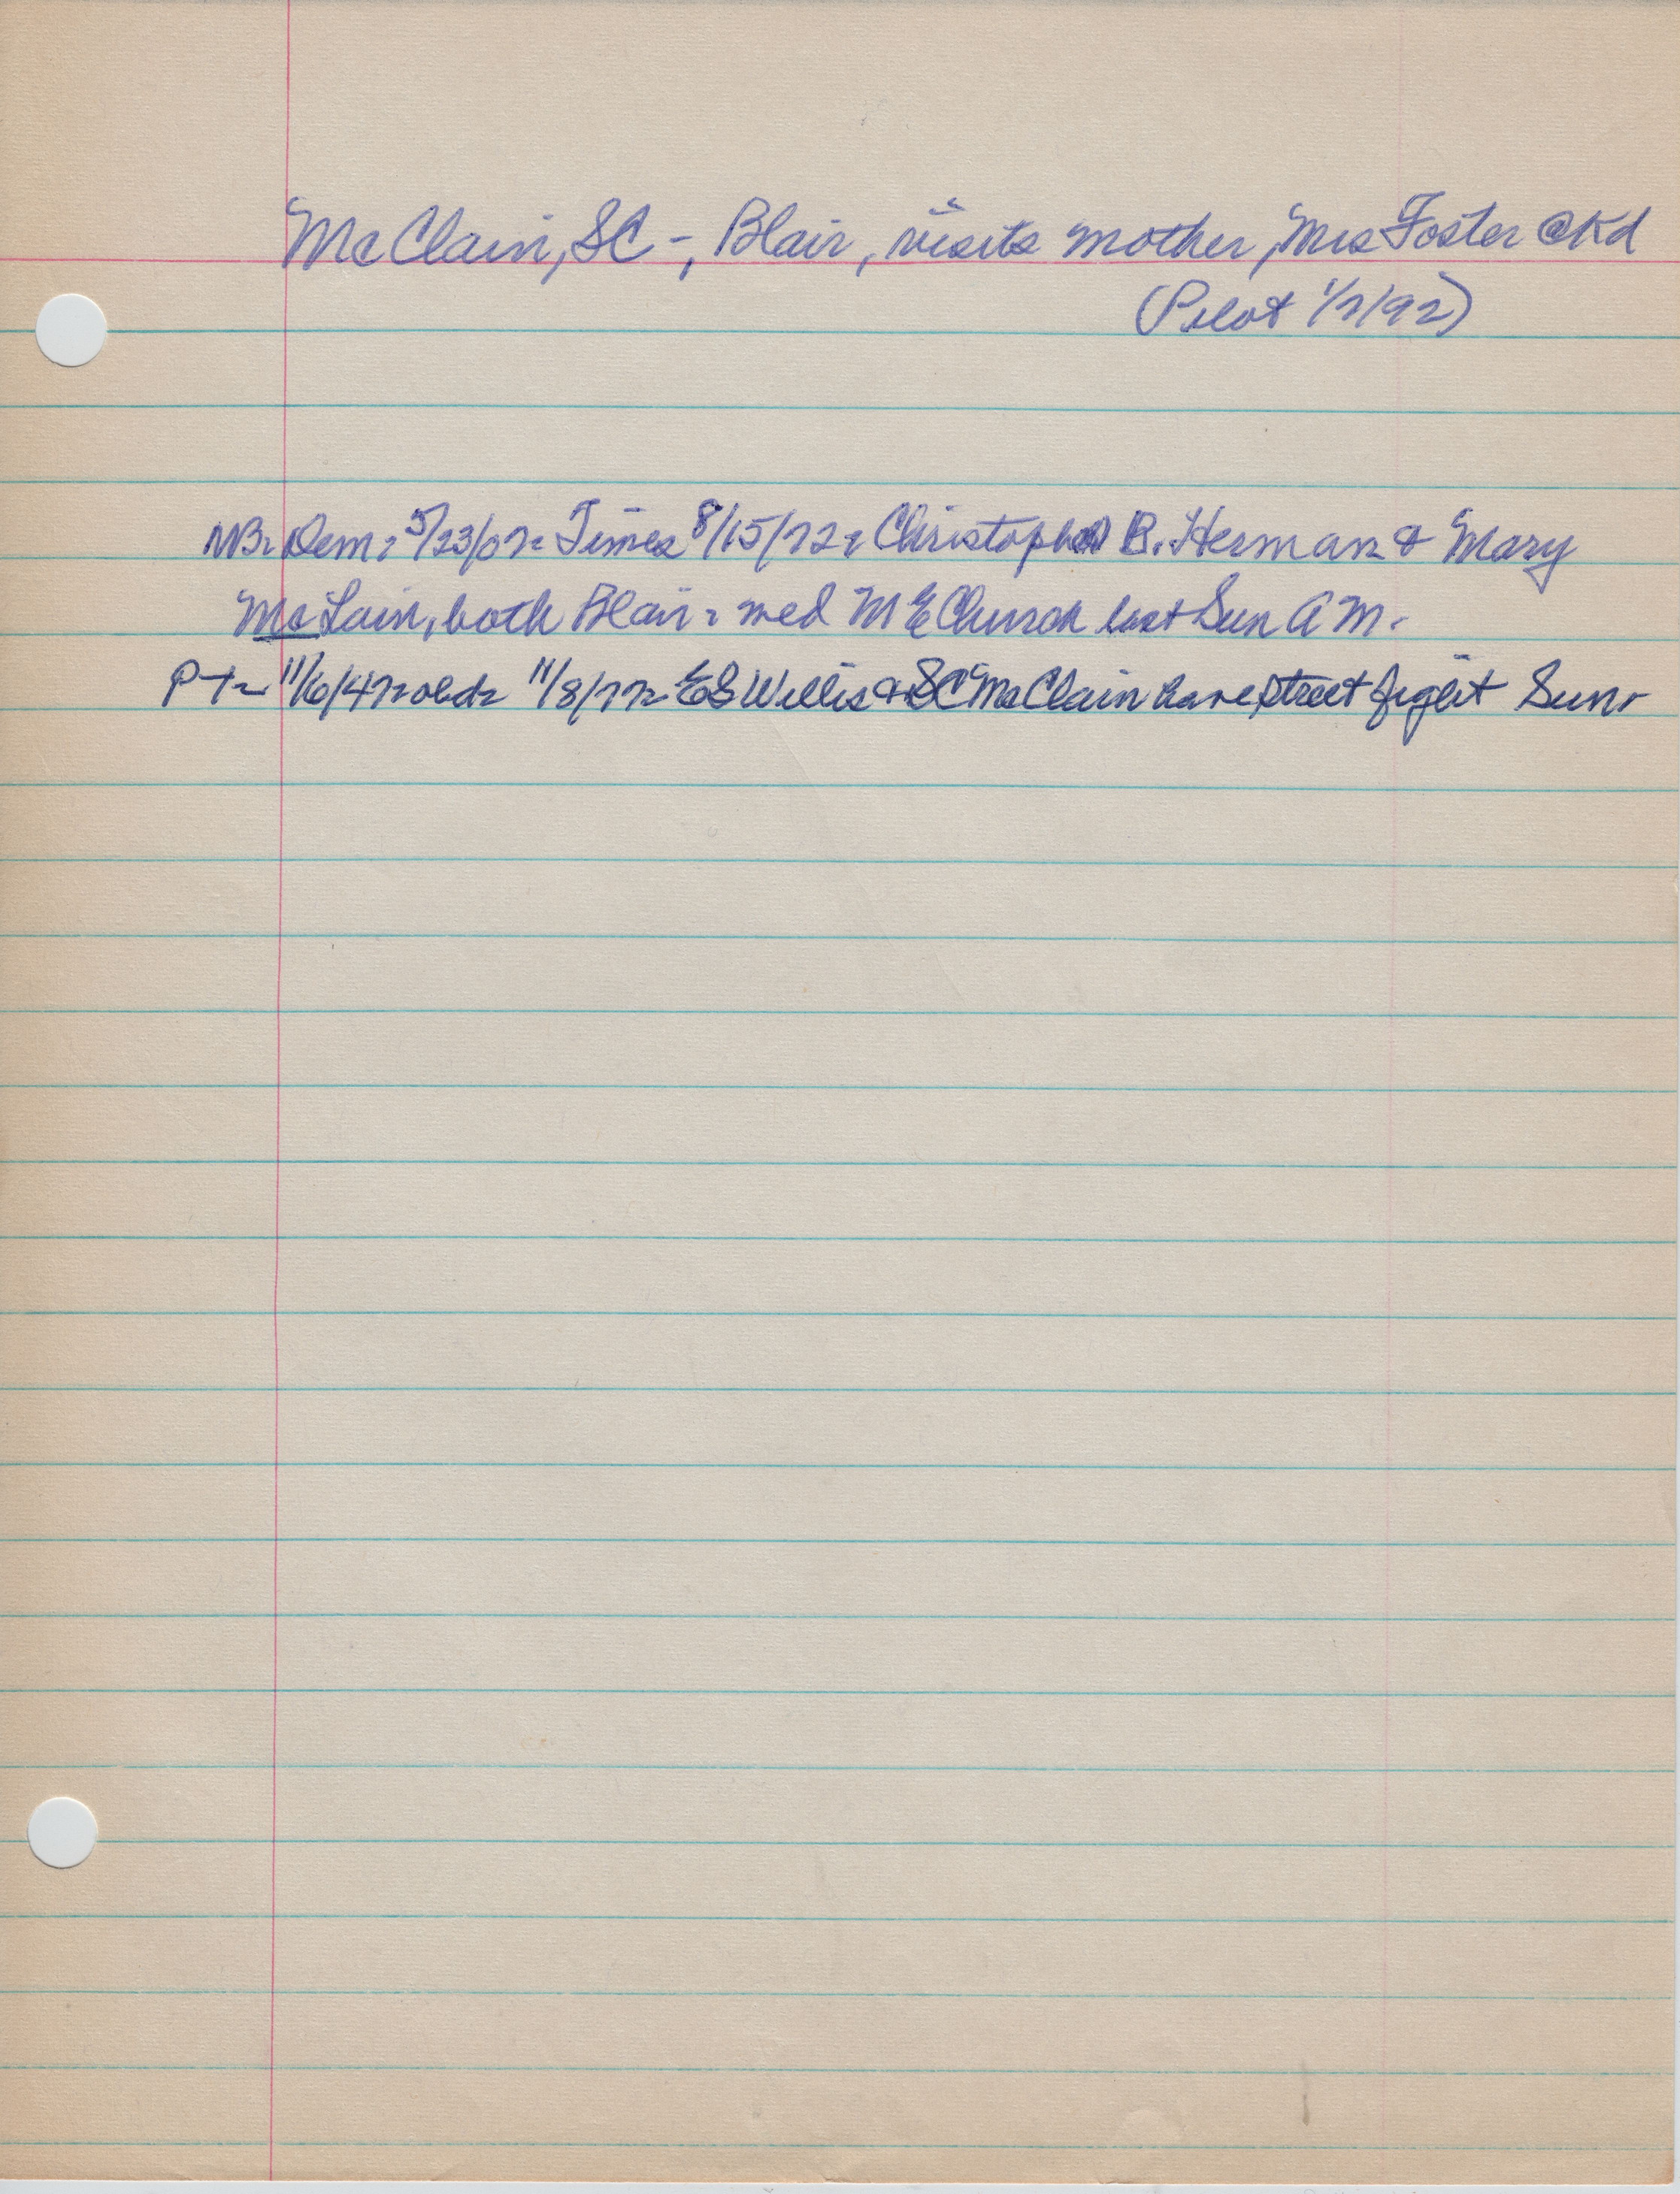 McClain, SC -, Blair, visits mother, Mrs Foster @ Kd
(Pilot 1/7/92)
NB- Dem- 5/23/07- Times 8/15/72- Christopher B. Herman & Mary
McLain, both Blair- med M E Church last Sun A M.
P T- 11/6/47- old- 11/8/77- ES Willis & SC McClain have street fight Sun-